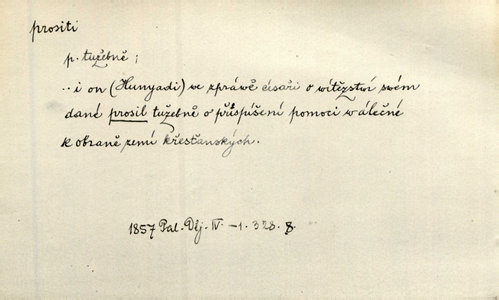 prositi
p. tužebně;
.. i on (Hunyadi) ve zprávě císaři o vítězství svém
dané prosil tužebně o přispíšení pomoci válečné
k obraně zemí křesťanských.
1857 Pal. Děj. IV. -1. 328. 8.